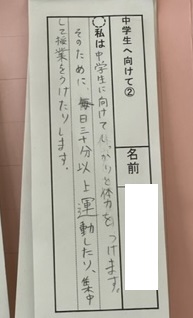 中学生へ向けて②
名前
私は中学生に向けてしっかりと体力をつけます。
そのために、毎日三十分以上運動したり、集中
して授業をうけたりします。